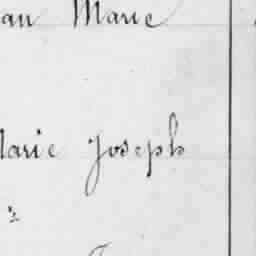 an Marie
Marie Joseph